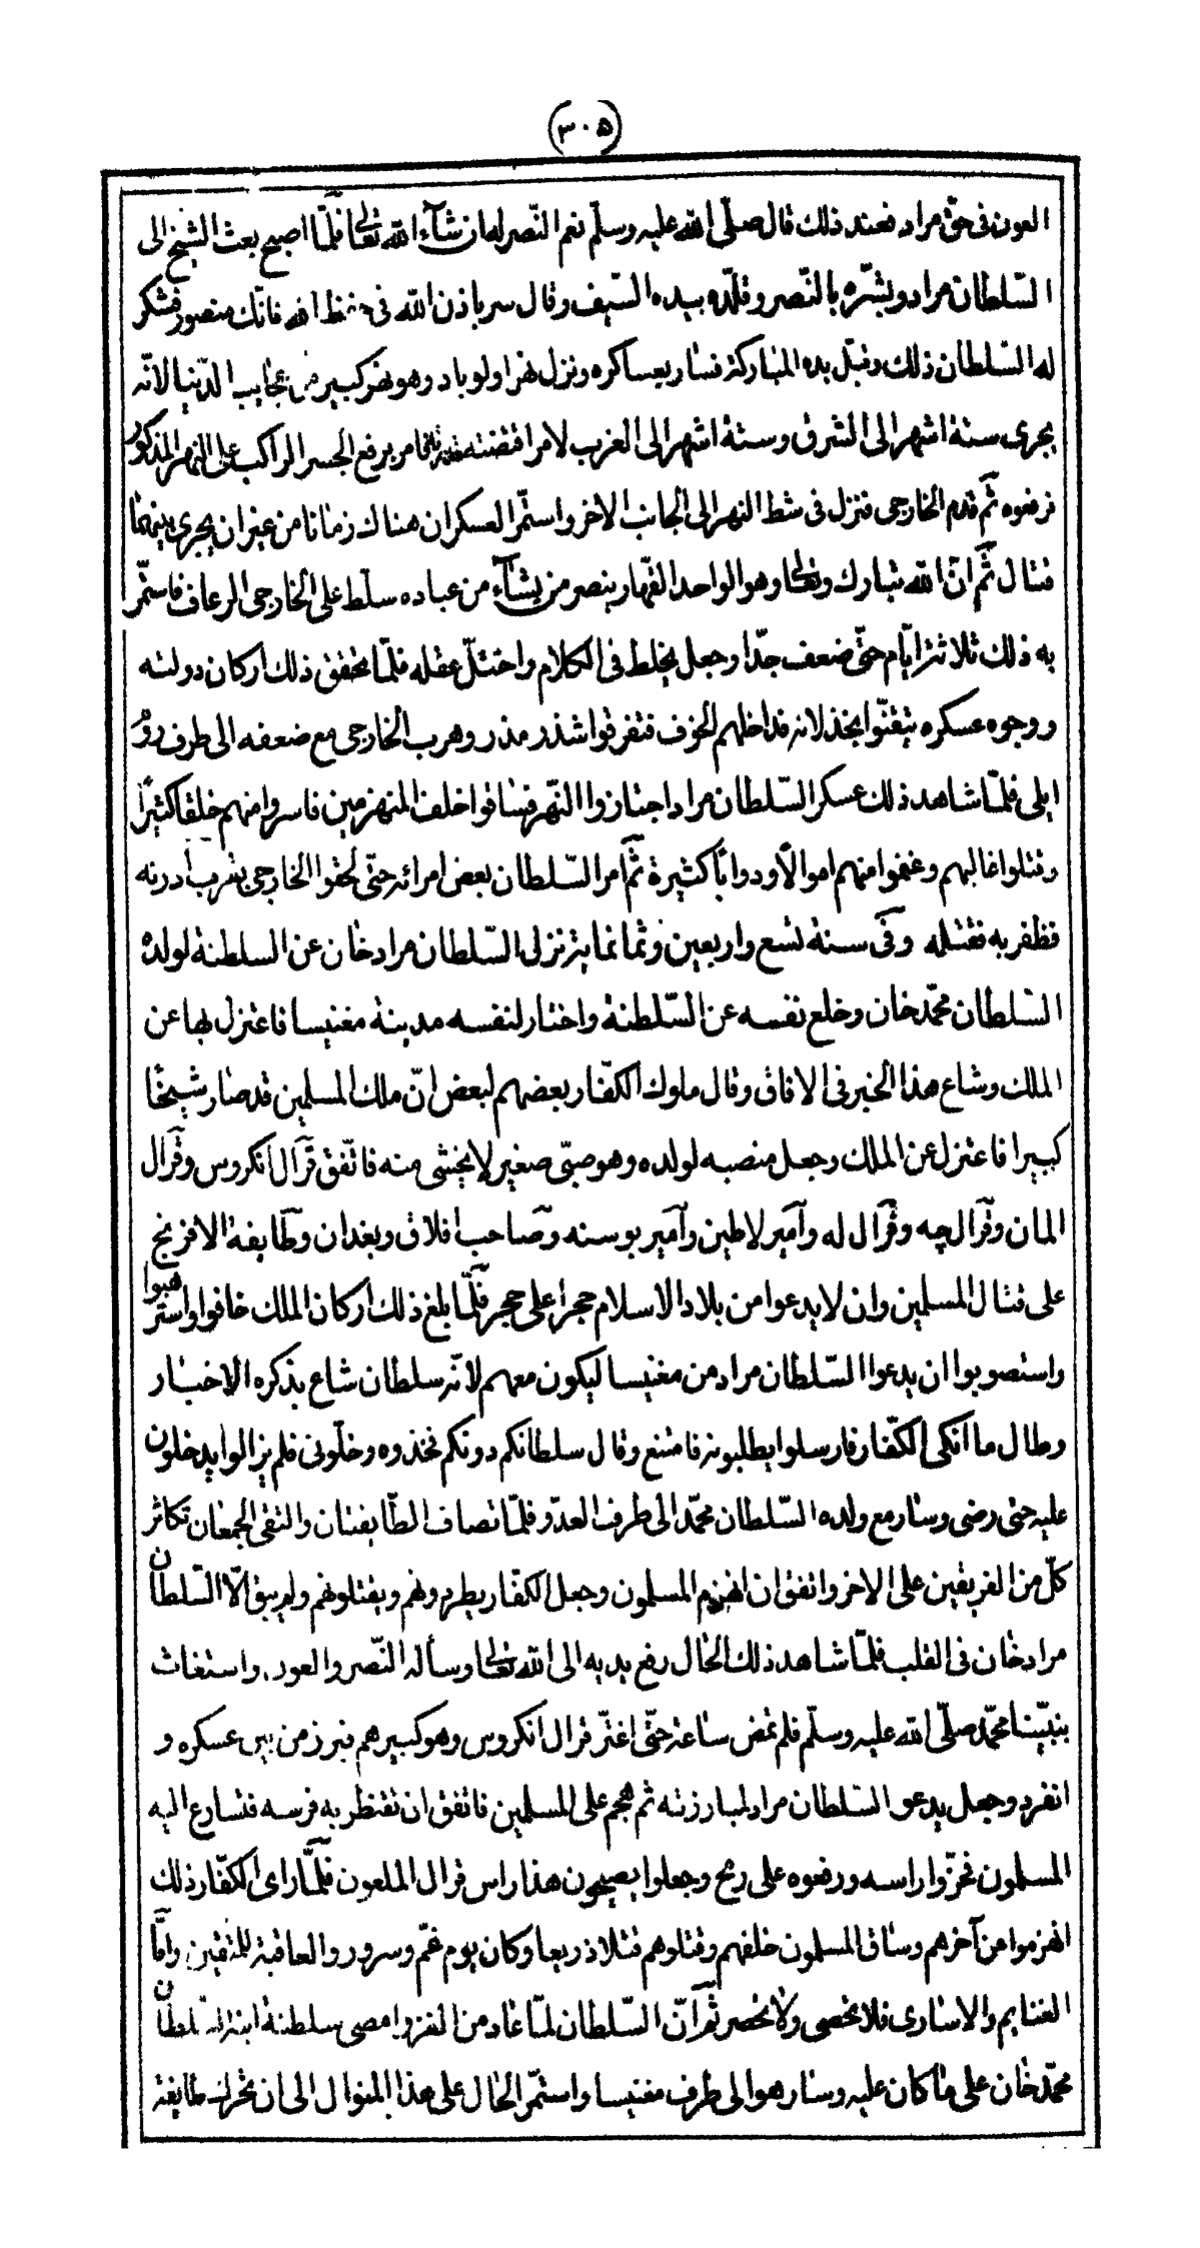 (٣٠٥)
العون فى حقّ مراد فعند ذلك قال صلّى الله عليه وسلّم نعم النّصر له ان شآء الله تعالى فلمّا اصبح بعث الشيخ الى
السّلطان مراد وبشّره بالنّصر وقلّده بيده السّيف وقال سر باذن الله فى حفظ الله فانّك منصور فشكر
له السّلطان ذلك وقبّل يده المباركة فسار بعساكره ونزل نهر اولوباد وهو نهر كبير من عجايب الدّنيا لانّه
يجرى ستة اشهر الى الشرق وستة اشهر الى الغرب لامر اقتضته فامر برفع الجسر الراكب على النهر المذكور
فرفعوه ثمّ قدم الخارجى فنزل فى شط النهر الى الجانب الاخر واستمّر العسكران هناك زمانا من غير ان يجرى بينهما
قتال ثمّ انّ الله تبارك وتعالى وهو الواحد القهار ينصر من يشآء من عباده سلّط على الخارجى الرعاف فاستمّر
به ذلك ثلاثة ايّام حتّى ضعف جدّا وجعل يخلط فى الكلام واختلّ عقله فلمّا تحقق ذلك اركان دولته
ووجوه عسكره تيقّنوا بخذلانه قد اخلهم الخوف فتفرقوا شذر مذر وهرب الخارجى مع ضعفه الى طرف رو
ايلى فلمّا شاهد ذلك عسكر السّلطان مراد اجتازوا النّهر فساقوا خلف المنهزمين فاسروا منهم خلقا كثيرًا
وقتلوا غالبهم وغنموا منهم اموالًا ودوابّا كثيرة ثمّ امر السّلطان بعض امرائه حتّى لحقوا الخارجى بقرب ادرنه
فظفر به فقتله وفى سنة تسع واربعين وثمانماية نزل السّلطان مراد خان عن السلطنة لولده
السّلطان محمّد خان وخلع نفسه عن السّلطنة واختار لنفسه مدينة مغنيسا فاعتزل بها عن
الملك وشاع هذا الخبر فى الافاق وقال ملوك الكفّار بعضهم لبعض انّ ملك المسلمين قد صار شيخا
كبيرا فاعتزل عن الملك وجعل منصبه لولده وهو صبّى صغير لا يخشى منه فاتّفق قرال انكروس وقرال
المان وقرال چه وقرال له وامير لاطين وامير بوسنه وصاحب افلاق وبغدان وطايفة الافرنج
على قتال المسلمين وان لا يدعوا من بلاد الاسلام حجرا على حجر فلمّا بلغ ذلك اركان الملك خافوا واسترهبوا
واستصوبوا ان يدعوا السّلطان مراد من مغنيسا ليكون معهم لانّه سلطان شاع بذكره الاخبار
وطال ما انكى الكفّار فارسلوا يطلبونه فامتنع وقال سلطانكم دونكم فخذوه وخلّونى فلم يزالوا يدخلون
عليه حتى رضى وسار مع ولده السّلطان محمّد الى طرف العدّو فلمّا تصاف الطّايفتان والتقى الجمعان تكاثر
كلّ من الفريقين على الاخر واتفق ان انهزم المسلمون وجعل الكفّار يطردونهم ويقتلونهم ولم يبق الّا السّلطان
مراد خان فى القلب فلمّا شاهد ذلك الحال رفع يديه الى الله تعالى وسأله النّصر والعون واستغاث
بنبيّنا محمّد صلّى الله عليه وسلّم فلم تمض ساعة حتّى اغترّ قرال انكروس وهو كبيرهم فبرز من بين عسكره و
انفرد وجعل يدعو السّلطان مراد لمبارزته ثم هجم على المسلمين فاتفق ان تقنطر به فرسه فتسارع اليه
المسلمون فحزّوا راسه ورفعوه على رمح وجعلوا يصيحون هذا راس قرال الملعون فلمّا راى الكفّار ذلك
انهزموا عن آخرهم وساق المسلمون خلفهم وقتلوهم قتلا ذريعا وكان يوم غمّ وسرور والعاقبة للمتقين وامّا
الغنايم والاسارى فلا تحصى ولا تحصر ثم انّ السّلطان لمّا عاد من الغزو امضى سلطنة ابنه السّلطان
محمّد خان على ما كان عليه وسار هو الى طرف مغنيسا واستمّر الحال على هذا المنوال الى ان تحرك طايفة